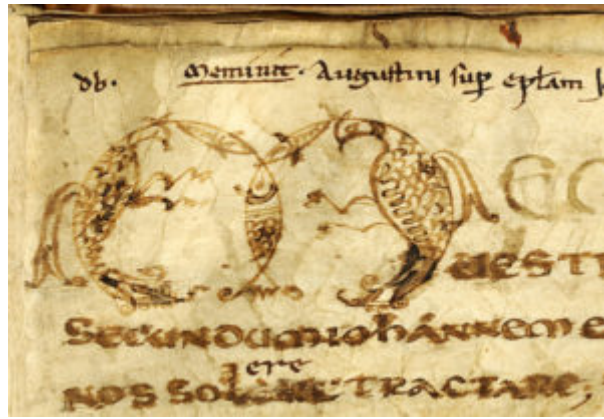 db. Meminit. Augustini sup̲ ep̄lam
ME
UEST
SECUNDUM IOHANNEM E
ere
NOS SOLERE TRACTARE;